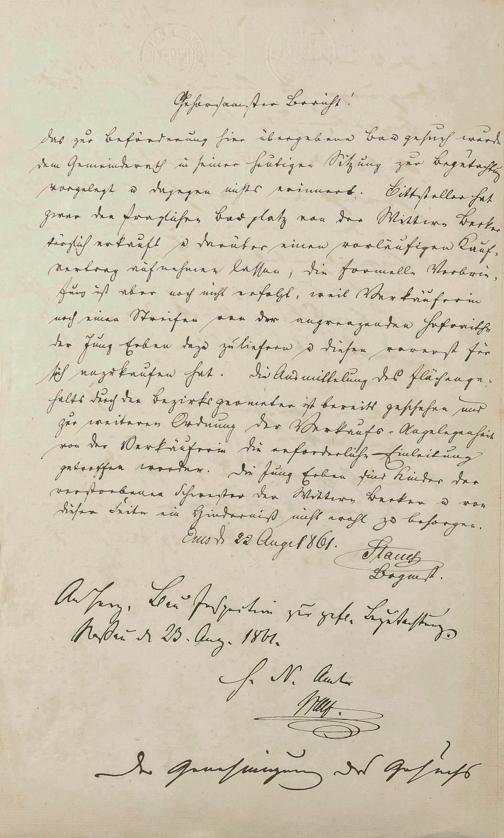 Gehorsamster Bericht!
Das zur Beförderung hier übergebene Baugesuch wurde
dem Gemeinderath in seiner heutigen Sitzung zur Begutachtung
vorgelegt u dagegen nichts erinnert. Bittsteller hat
zwar den fraglichen Bauplatz von der Wittwe Becker
käuflich erkauft u darüber einen vorläufigen Kauf-
vertrag aufnehmen lassen, die formelle Verbrie-
fung ist aber noch nicht erfolgt, weil Verkäuferin
noch einen Streifen von der angrenzenden Hofraithe
der Jung Erben dazu zu liefern u diesen vorerst für
sich anzukaufen hat. Die Ausmittelung des Flächenge-
halts durch den Bezirksgeometer ist bereits geschehen und
zur weiteren Ordnung der Verkaufs-Angelegenheit
von der Verkäuferin die erforderliche Einleitung
getroffen worden. Die Jung Erben sind Kinder der
verstorbenen Schwester der Wittwe Becker u von
dieser Seite ein Hinderniß nicht wohl zu besorgen.
Ems d. 22 Aug. 1861.
Bürgmst.
An Herz. Bau Inspection zur gefl. Begutachtung.
Nassau d. 23. Aug. 1861.
H. N. Amt
Der Genehmigung des Gesuchs